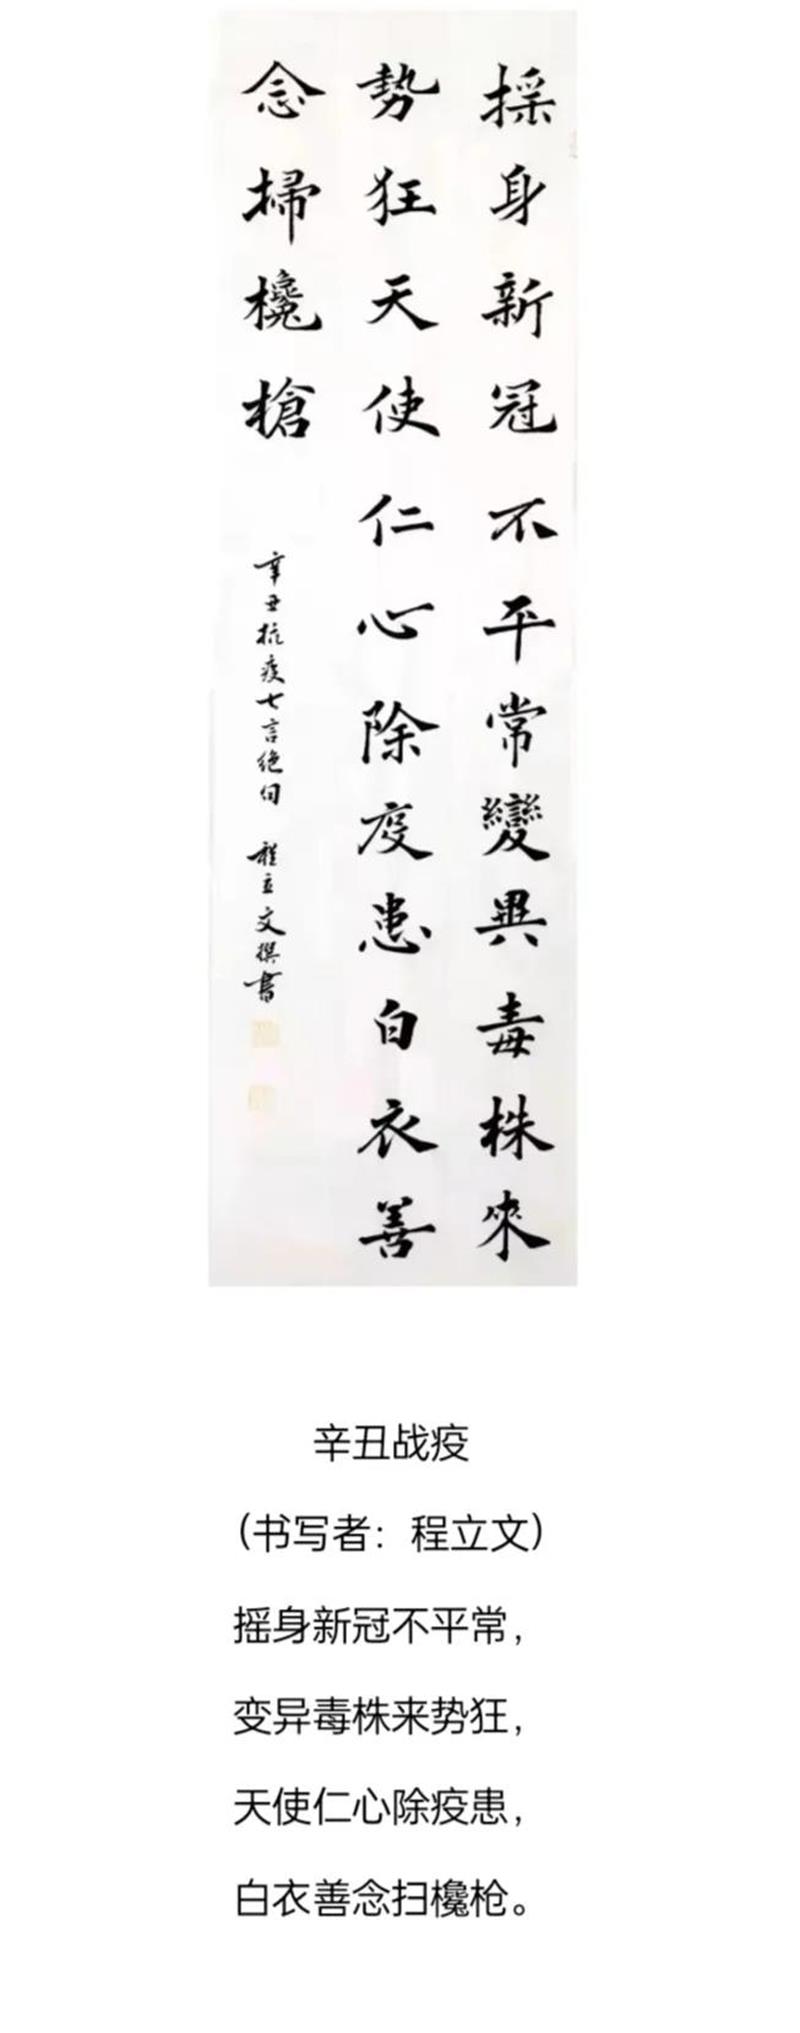 搖身新冠不平常變異毒株來
勢狂天使仁心除疫患白衣善
念掃欃槍
辛丑抗疫七言絕句 程立文撰書
辛丑战疫
（书写者：程立文）
摇身新冠不平常，
变异毒株来势狂，
天使仁心除疫患，
白衣善念扫欃枪。